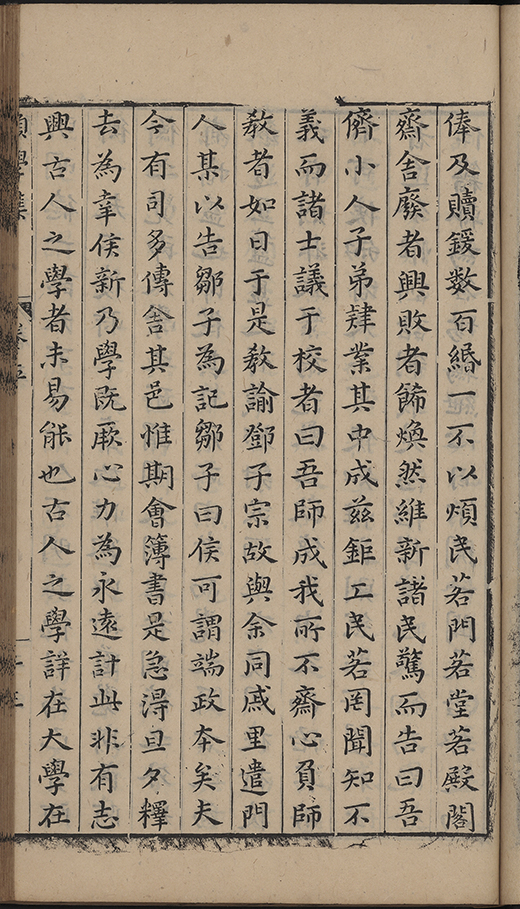 俸及贖鍰数百緡一不以煩民若門若堂若殿閣
齋舍廢者興敗者飾煥然維新諸民驚而告曰吾
儕小人子弟肄業其中成兹鉅工民若罔聞知不
義而諸士議于校者曰吾師成我所不齋心負師
教者如日于是教諭鄧子宗故與余同戚里遣門
人某以告鄒子為記鄒子曰侯可謂端政夲矣夫
今有司多傳舍其邑惟期會簿書是急淂旦夕釋
去為幸侯新乃學既厥心力為永遠計此非有志
興古人之學者未易能也古人之學詳在大學在
願學集 卷五